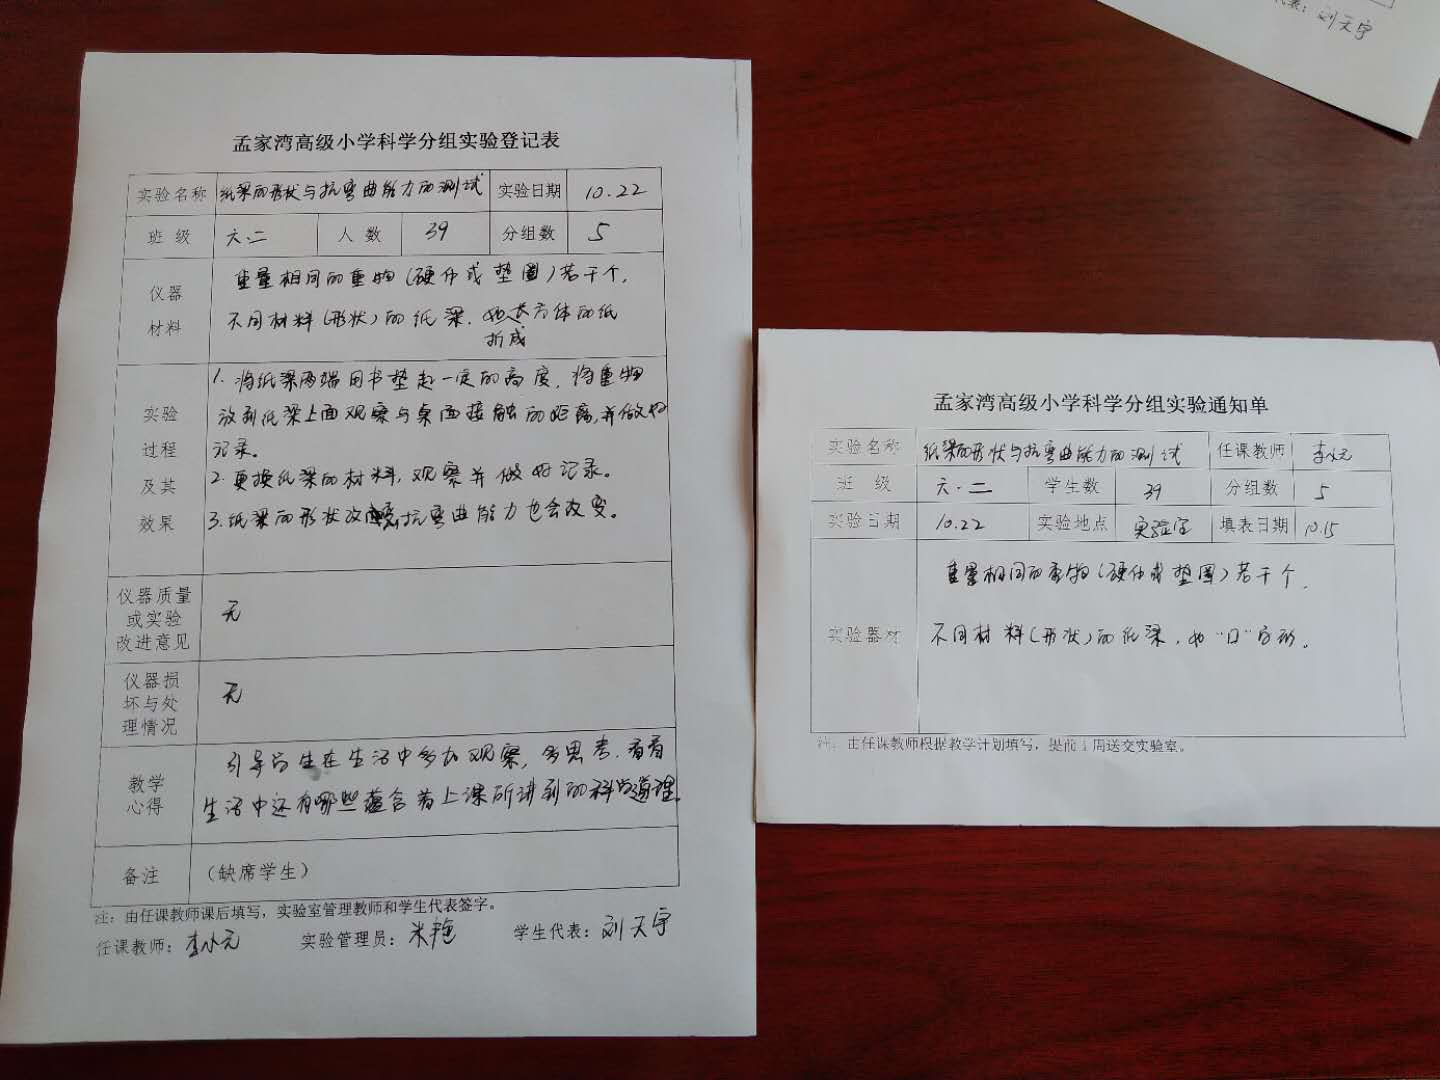 代表：刘天宇
孟家湾高级小学科学分组实验登记表
实验名称 纸梁的形状与抗弯曲能力的测试 实验日期 10.22
班 级 六.二 人 数 39 分组数 5
仪器
材料
重量相同的重物（硬币或垫圈）若干个，
不同材料（形状）的纸梁，如长方体的纸
折成
实验
过程
及其
效果
1. 将纸梁两端用书垫起一定的高度，将重物
放到纸梁上面观察与桌面接触的距离，并做好
记录。
2. 更换纸梁的材料，观察并做好记录。
3. 纸梁的形状改变抗弯曲能力也会改变。
仪器质量
或实验
改进意见
无
仪器损
坏与处
理情况
无
教学
心得
引导学生在生活中多加观察，多思考，看看
生活中还有哪些蕴含着上课所讲到的科学道理。
备注 （缺席学生）
注：由任课教师课后填写，实验室管理教师和学生代表签字。
任课教师：李小元 实验管理员：米艳 学生代表：刘天宇
孟家湾高级小学科学分组实验通知单
实验名称 纸梁的形状与抗弯曲能力的测试 任课教师 李小元
班 级 六.二 学生数 39 分组数 5
实验日期 10.22 实验地点 实验室 填表日期 10.15
实验器材
重量相同的重物（硬币或垫圈）若干个，
不同材料（形状）的纸梁，如“口”字形。
注：由任课教师根据教学计划填写，提前1周送交实验室。